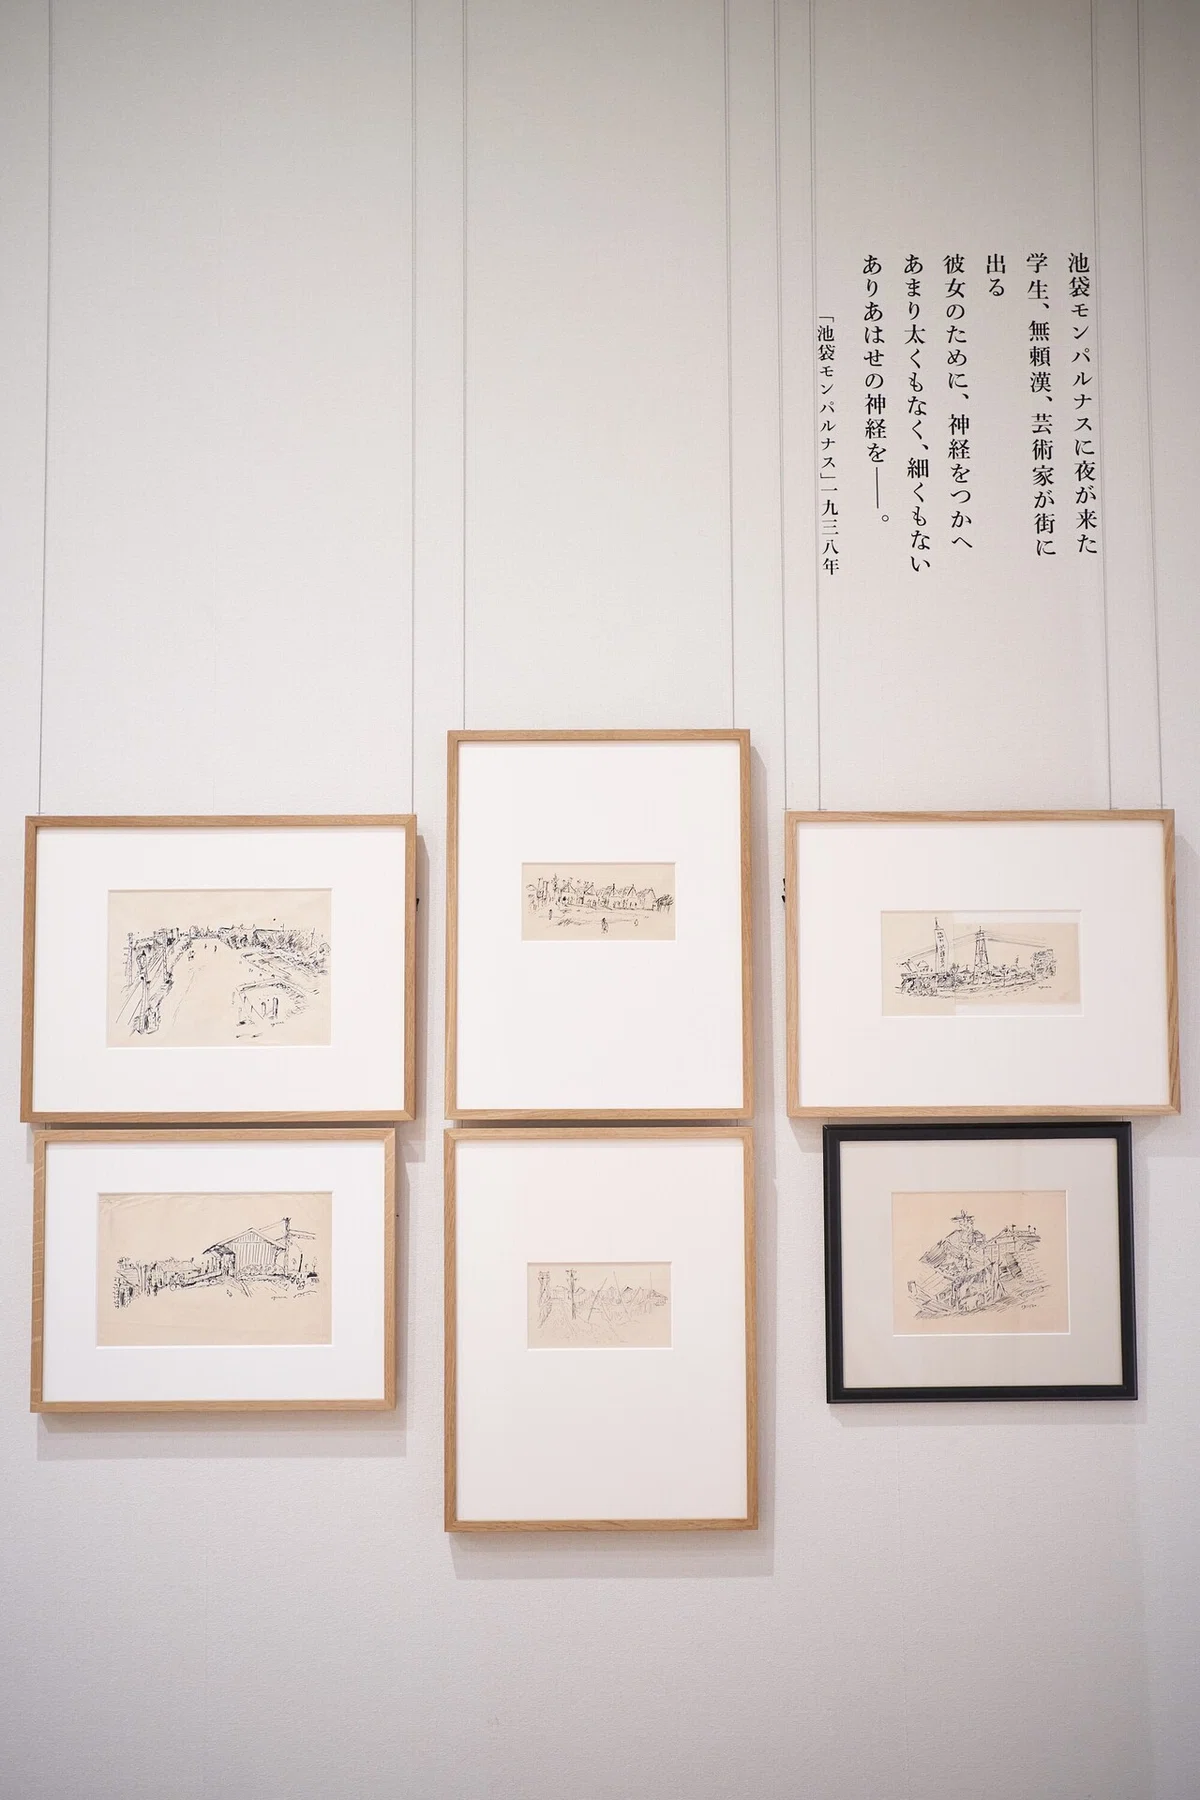 池袋モンパルナスに夜が来た
学生、無頼漢、芸術家が街に
出る
彼女のために、神経をつかへ
あまり太くもなく、細くもない
ありあはせの神経を――。
「池袋モンパルナス」一九三八年